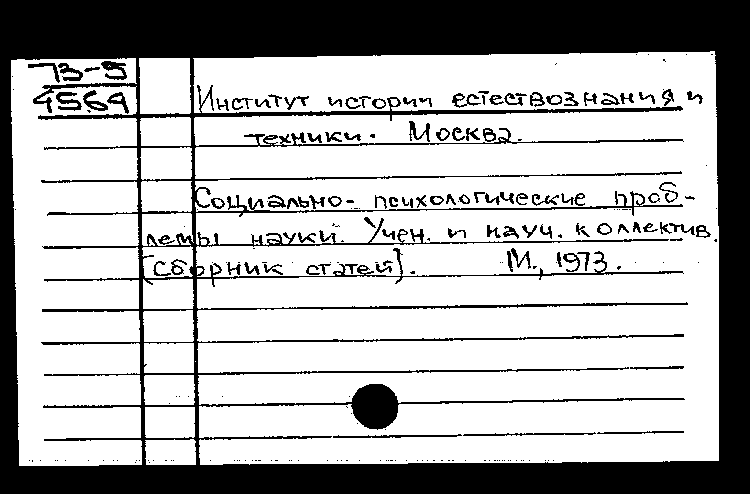 73-5
4564
Институт истории естествознания и
техники. Москва.
Социально-психологические проб-
лемы науки. Учен. и науч. коллектив.
[Сборник статей]. М., 1973.